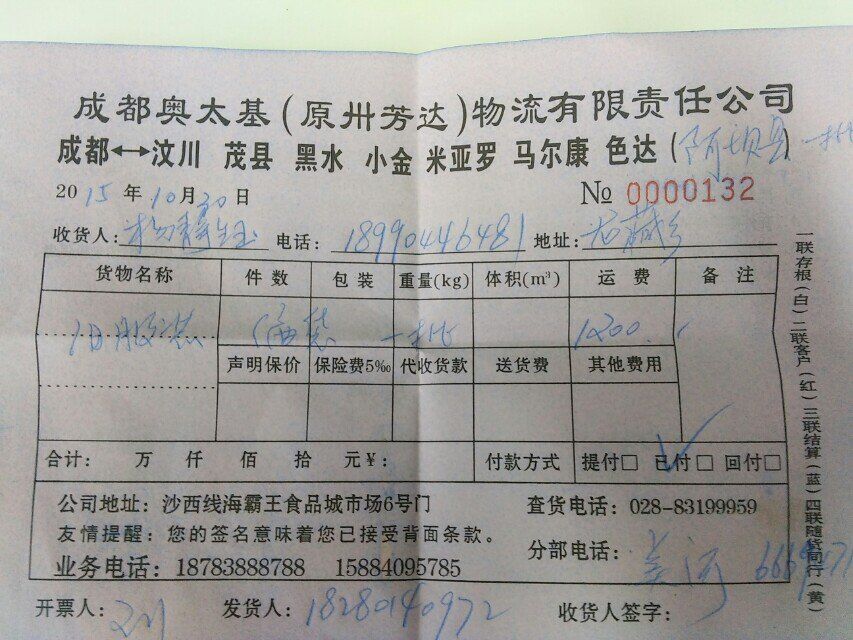 成都奥太基(原卅芳达)物流有限责任公司
成都↔汶川 茂县 黑水 小金 米亚罗 马尔康 色达(阿坝县)一批
2015年10月30日 № 0000132
收货人: 电话: 18990446481 地址:
货物名称 件数 包装 重量(kg) 体积(m³) 运费 备注
旧服装 一批 1200
声明保价 保险费5‰ 代收货款 送货费 其他费用
合计: 万 仟 佰 拾 元¥: 付款方式 提付□ 已付□ 回付□
公司地址:沙西线海霸王食品城市场6号门 查货电话:028-83199959
友情提醒:您的签名意味着您已接受背面条款。
分部电话:
业务电话:18783888788 15884095785
开票人: 发货人:18280140972 收货人签字:
一联存根(白)二联客户(红)三联结算(蓝)四联随货同行(黄)